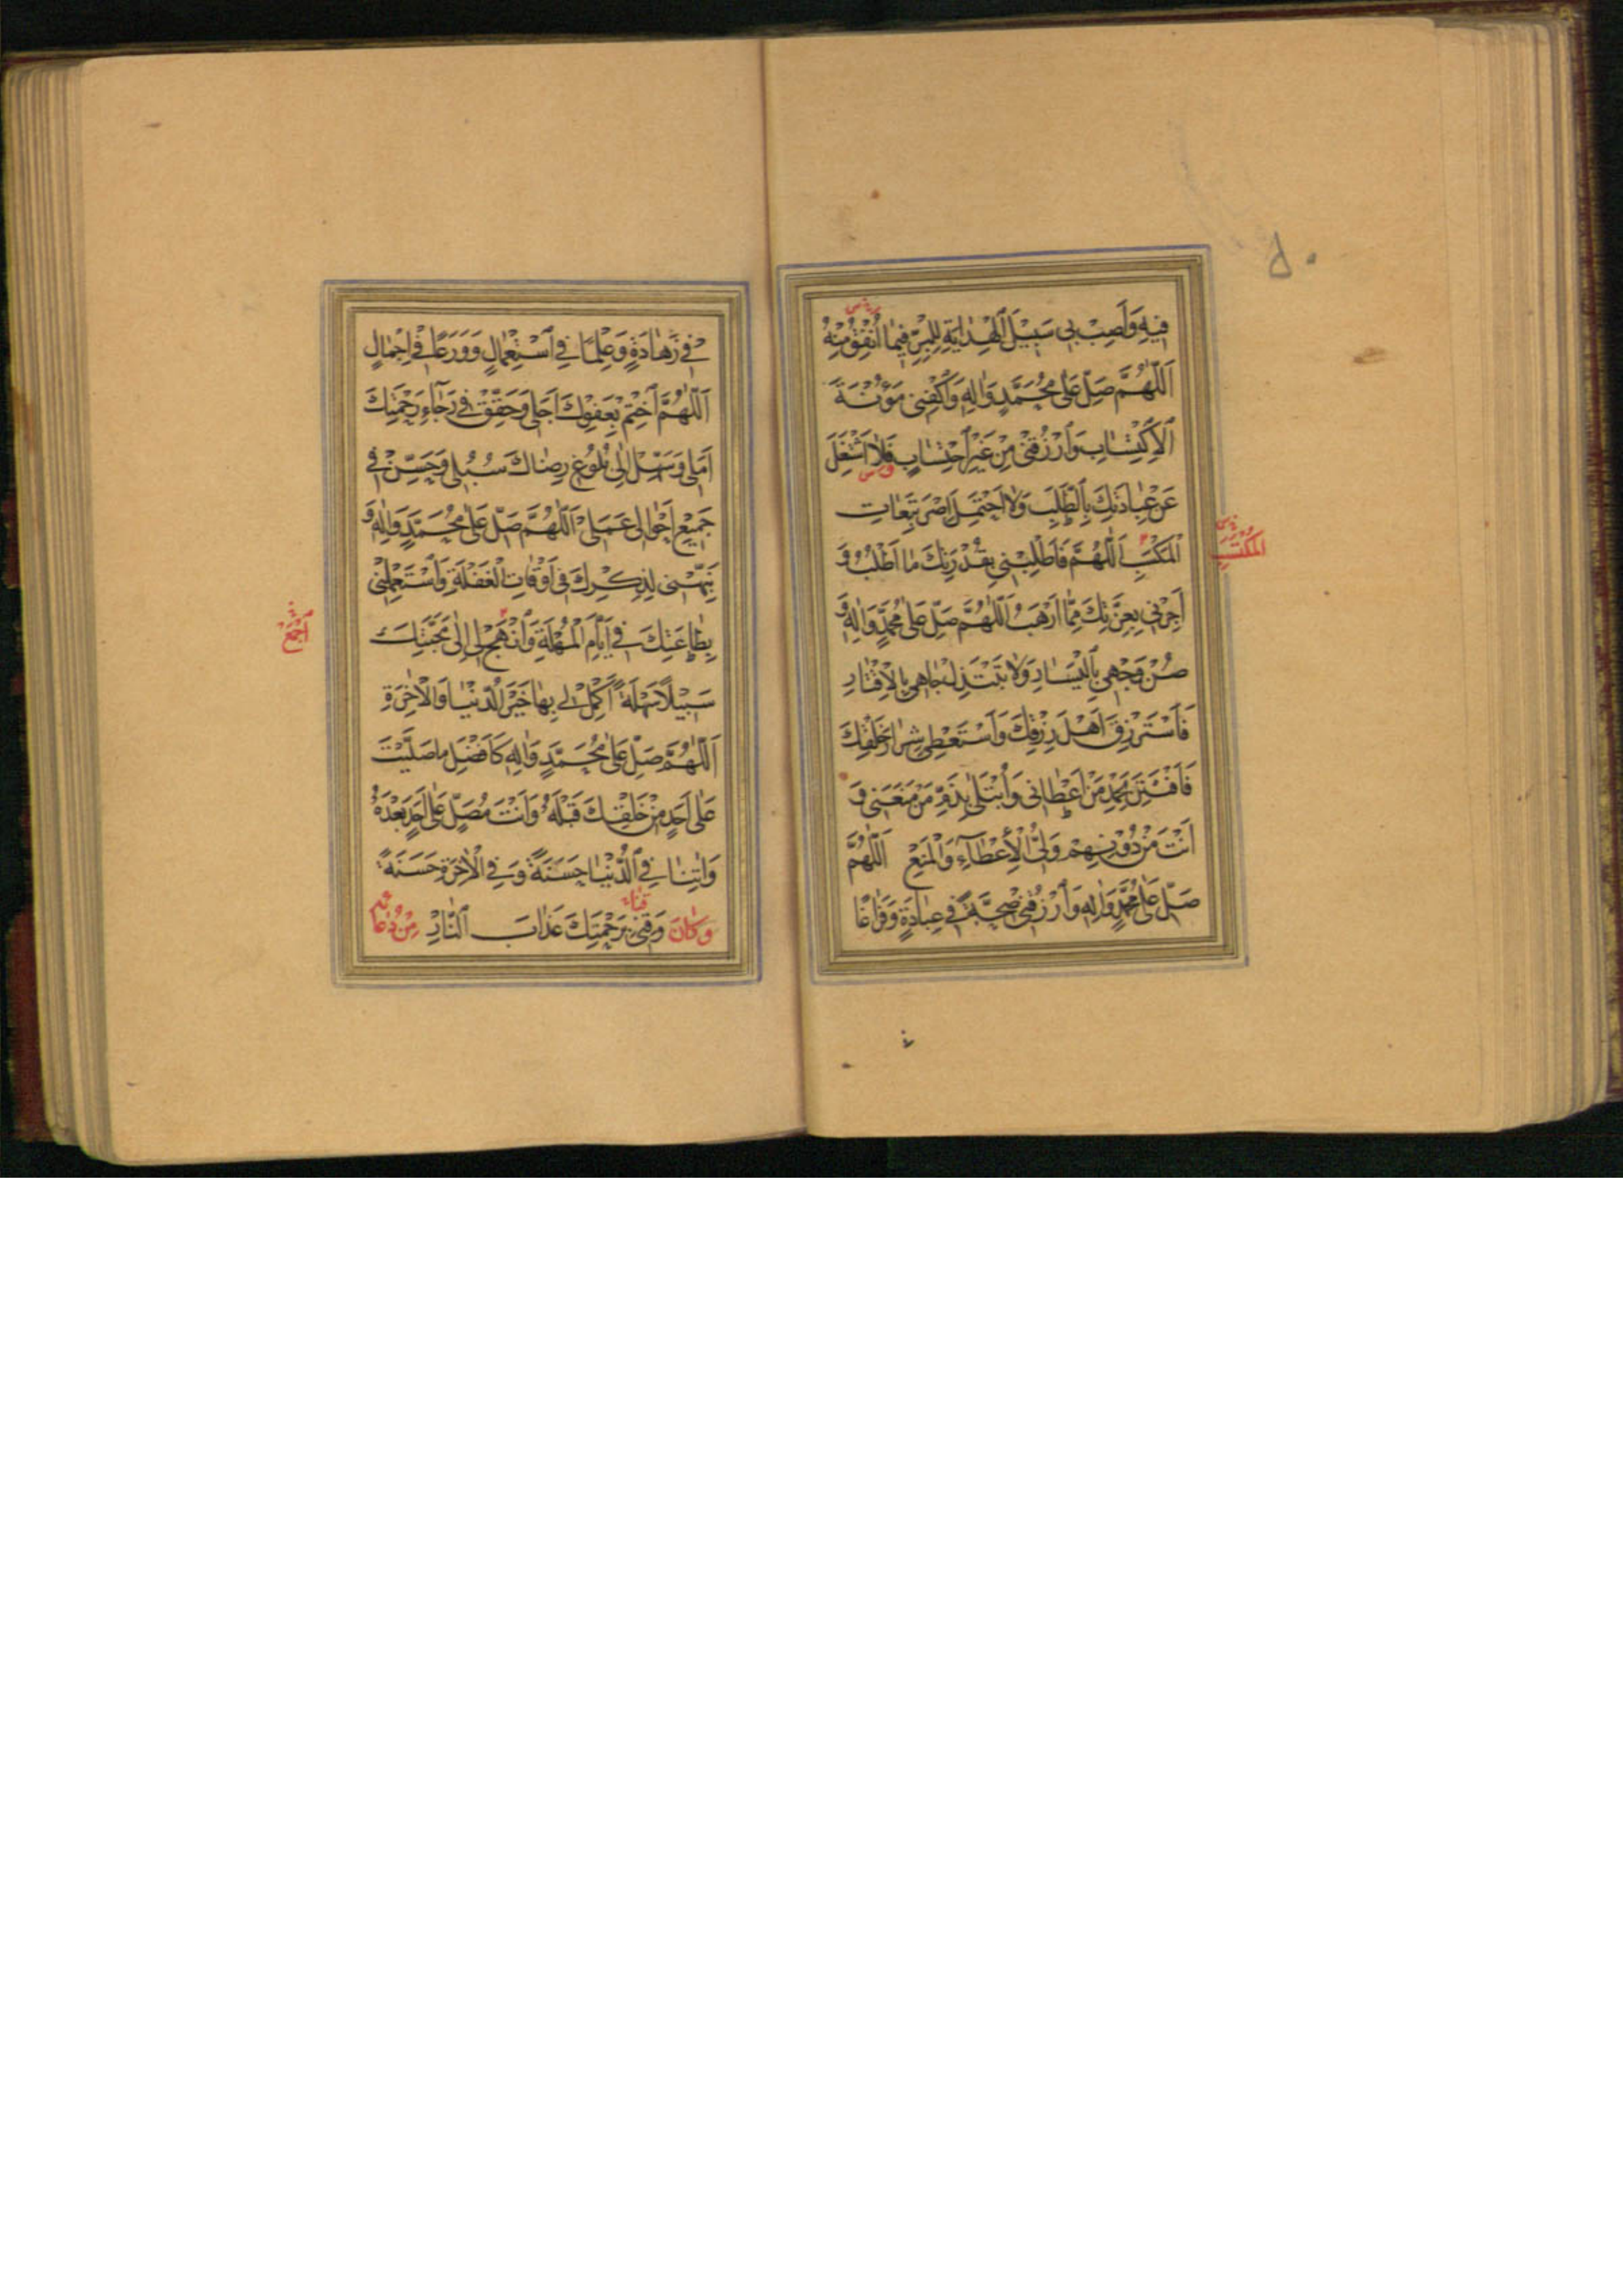 فِيهِ وَاَصِبْ بى سَبيْلَ الْهِدٰايَةِ لِلْبِرِّ فِيمٰا اُنْفِقُ مِنْهُ
اَللّٰهُمَّ صَلِّ عَلىٰ مُحَمَّدٍ وَاٰلِهِ وَاكْفِنى مَؤُنَةَ
اَلْاِكْتِسٰابِ وَارْزُقْنى مِنْ غَيْرِ احْتِسٰابٍ فَلٰا اَشْتَغِلَ
عَنْ عِبٰادَتِكَ بِالطَّلَبِ وَلٰا اَحْتَمِلَ اِصْرَ تَبِعٰاتِ
الْمَكْسَبِ اَللّٰهُمَّ فَاَطْلِبْنى بِقُدْرَتِكَ مٰا اَطْلُبُ وَ
اَجِرْنى بِعِزَّتِكَ مِمّٰا اَرْهَبُ اَللّٰهُمَّ صَلِّ عَلىٰ مُحَمَّدٍ وَاٰلِهِ وَ
صُنْ وَجْهى بِالْيَسٰارِ وَلٰا تَبْتَذِلْ جٰاهى بِالْاِقْتٰارِ
فَاَسْتَرْزِقَ اَهْلَ رِزْقِكَ وَاَسْتَعْطِىَ شِرٰارَ خَلْقِكَ
فَاَفْتَتِنَ بِحَمْدِ مَنْ اَعْطٰانى وَاُبْتَلىٰ بِذَمِّ مَنْ مَنَعَنى وَ
اَنْتَ مِنْ دُوْنِهِمْ وَلِىُّ الْاِعْطٰآءِ وَالْمَنْعِ اَللّٰهُمَّ
صَلِّ عَلىٰ مُحَمَّدٍ وَاٰلِهِ وَارْزُقْنى صِحَّةً فى عِبٰادَةٍ وَفَرٰاغًا
فى زَهٰادَةٍ وَعِلْمًا فِى اسْتِعْمٰالٍ وَوَرَعًا فى اِجْمٰالٍ
اَللّٰهُمَّ اخْتِمْ بِعَفْوِكَ اَجَلى وَحَقِّقْ فى رَجٰاءِ رَحْمَتِكَ
اَمَلى وَسَهِّلْ اِلىٰ بُلُوْغِ رِضٰاكَ سُبُلى وَحَسِّنْ فى
جَمِيْعِ اَحْوٰالى عَمَلىْ اَللّٰهُمَّ صَلِّ عَلىٰ مُحَمَّدٍ وَاٰلِهِ وَ
نَبِّهْنى لِذِكْرِكَ فى اَوْقٰاتِ الْغَفْلَةِ وَاسْتَعْمِلْنى
بِطٰاعَتِكَ فى اَيّٰامِ الْمُهْلَةِ وَانْهَجْ لى اِلىٰ مَحَبَّتِكَ
سَبيْلًا سَهْلَةً اَكْمِلْ لى بِهٰا خَيْرَ الدُّنْيٰا وَالْاٰخِرَةِ
اَللّٰهُمَّ صَلِّ عَلىٰ مُحَمَّدٍ وَاٰلِهِ كَاَفْضَلِ مٰا صَلَّيْتَ
عَلىٰ اَحَدٍ مِنْ خَلْقِكَ قَبْلَهُ وَاَنْتَ مُصَلٍّ عَلىٰ اَحَدٍ بَعْدَهُ
وَاٰتِنٰا فِى الدُّنْيٰا حَسَنَةً وَفِى الْاٰخِرَةِ حَسَنَةً
وَكٰانَ وَقِنى بِرَحْمَتِكَ عَذٰابَ النّٰارِ مِنْ دُعٰا